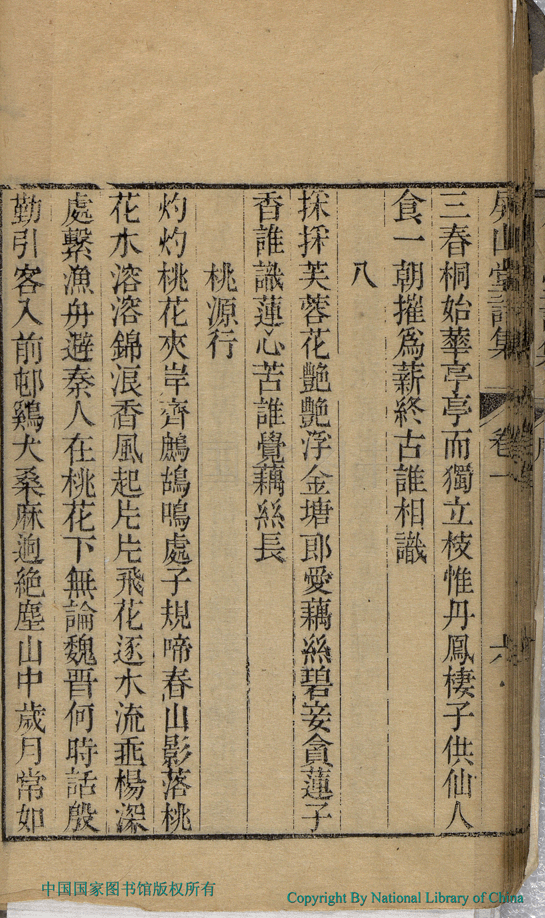 屏山堂詩集 卷一 六
三春桐始華亭亭而獨立枝惟丹鳳棲子供仙人
食一朝摧爲薪終古誰相識
八
採採芙蓉花艷艷浮金塘郎愛藕絲碧妾貪蓮子
香誰識蓮心苦誰覺藕絲長
桃源行
灼灼桃花夾岸齊鷓鴣鳴處子規啼春山影落桃
花水溶溶錦浪香風起片片飛花逐水流垂楊深
處繫漁舟避秦人在桃花下無論魏晋何時話殷
勤引客入前邨鷄犬桑麻逈絶塵山中歲月常如
中国国家图书馆版权所有
Copyright By National Library of China